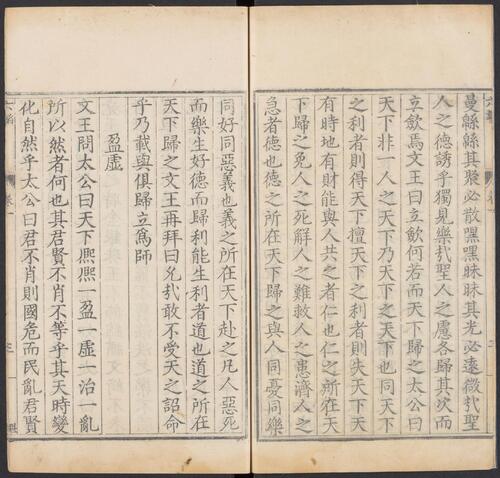 曼緜緜其聚必散嘿嘿昧昧其光必遠微㢤聖
人之德誘乎獨見樂㢤聖人之慮各歸其次而
立歛焉文王曰立歛何若而天下歸之太公曰
天下非一人之天下乃天下之天下也同天下
之利者則得天下擅天下之利者則失天下天
有時地有財能與人共之者仁也仁之所在天
下歸之免人之死解人之難救人之患濟人之
急者德也德之所在天下歸之與人同憂同樂
同好同惡義也義之所在天下赴之凡人惡死
而樂生好德而歸利能生利者道也道之所在
天下歸之文王再拜曰允㢤敢不受天之詔命
乎乃載與俱歸立爲師
盈虛
文王問太公曰天下熈熈一盈一虛一治一亂
所以然者何也其君賢不肖不等乎其天時變
化自然乎太公曰君不肖則國危而民亂君賢
六韜
卷一
三